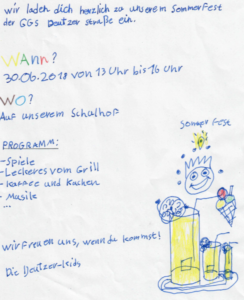 wir laden dich herzlich zu unserem Sommerfest
der GGS Deutzer Straße ein.
Wann?
30.06.2018 von 13 Uhr bis 16 Uhr
Wo?
Auf unserem Schulhof
Sommer Fest
PROGRAMM:
-Spiele
-Leckeres vom Grill
-Kaffee und Kuchen
-Musik
...
wir freuen uns, wenn du kommst!
Die Deutzer-Kids